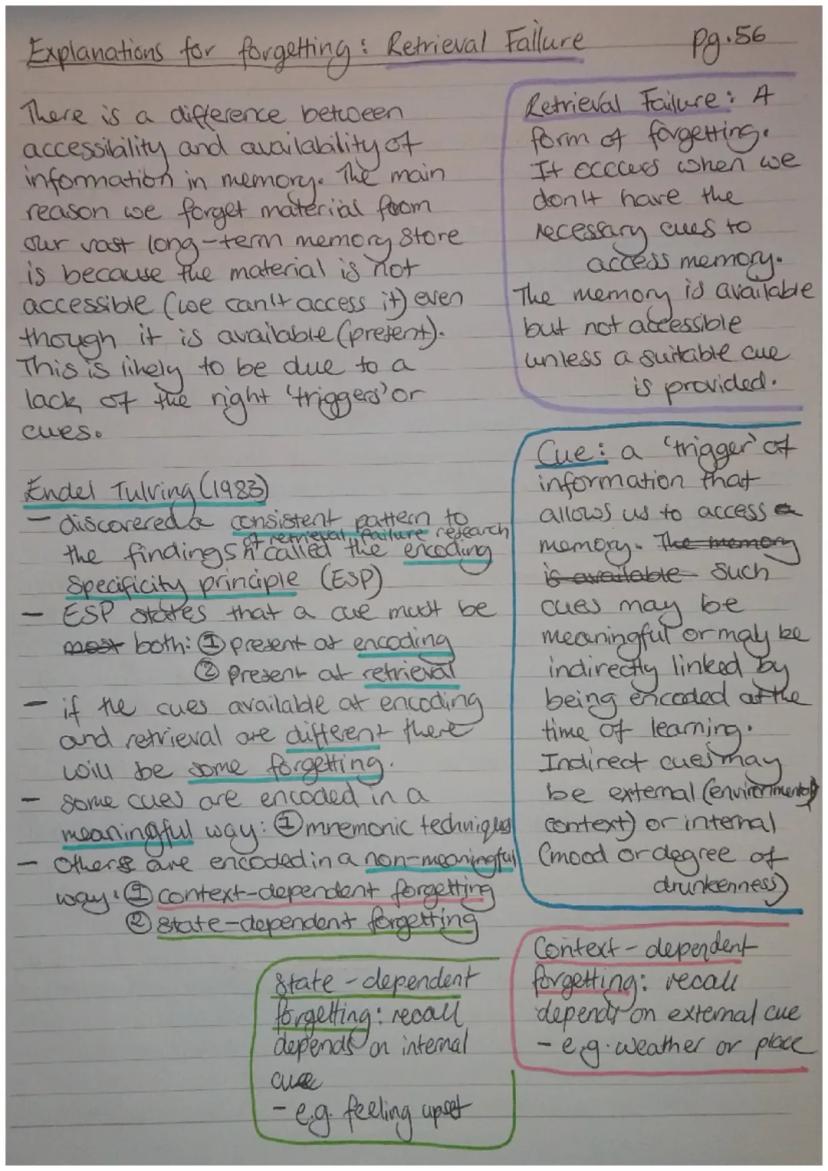 Explanations for forgetting: Retrieval Failure pg.56
There is a difference between
accessibility and availability of
information in memory. The main
reason we forget material from
our vast long-term memory store
is because the material is not
accessible (we can't access it) even
though it is available (present).
This is likely to be due to a
lack of the right 'triggers' or
cues.
Retrieval Failure: A
form of forgetting.
It occurs when we
don't have the
necessary cues to
access memory.
The memory is available
but not accessible
unless a suitable cue
is provided.
Endel Tulving (1983)
- discovered a consistent pattern to
of retrieval failure research
the findings called the encoding
specificity principle (ESP)
- ESP states that a cue must be
most both: ① present at encoding
② Present at retrieval
- if the cues available at encoding
and retrieval are different there
will be some forgetting.
- Some cues are encoded in a
meaningful way: ① mnemonic techniques
- Others are encoded in a non-meaningful
way: ① context-dependent forgetting
② state-dependent forgetting
Cue: a 'trigger' of
information that
allows us to access a
memory. The memory
is available such
cues may be
meaningful or may be
indirectly linked by
being encoded at the
time of learning.
Indirect cues may
be external (environmental
context) or internal
(mood or degree of
drunkenness)
State-dependent
forgetting: recall
depends on internal
cue
- e.g. feeling upset
Context-dependent
forgetting: recall
depends on external cue
- e.g. weather or place